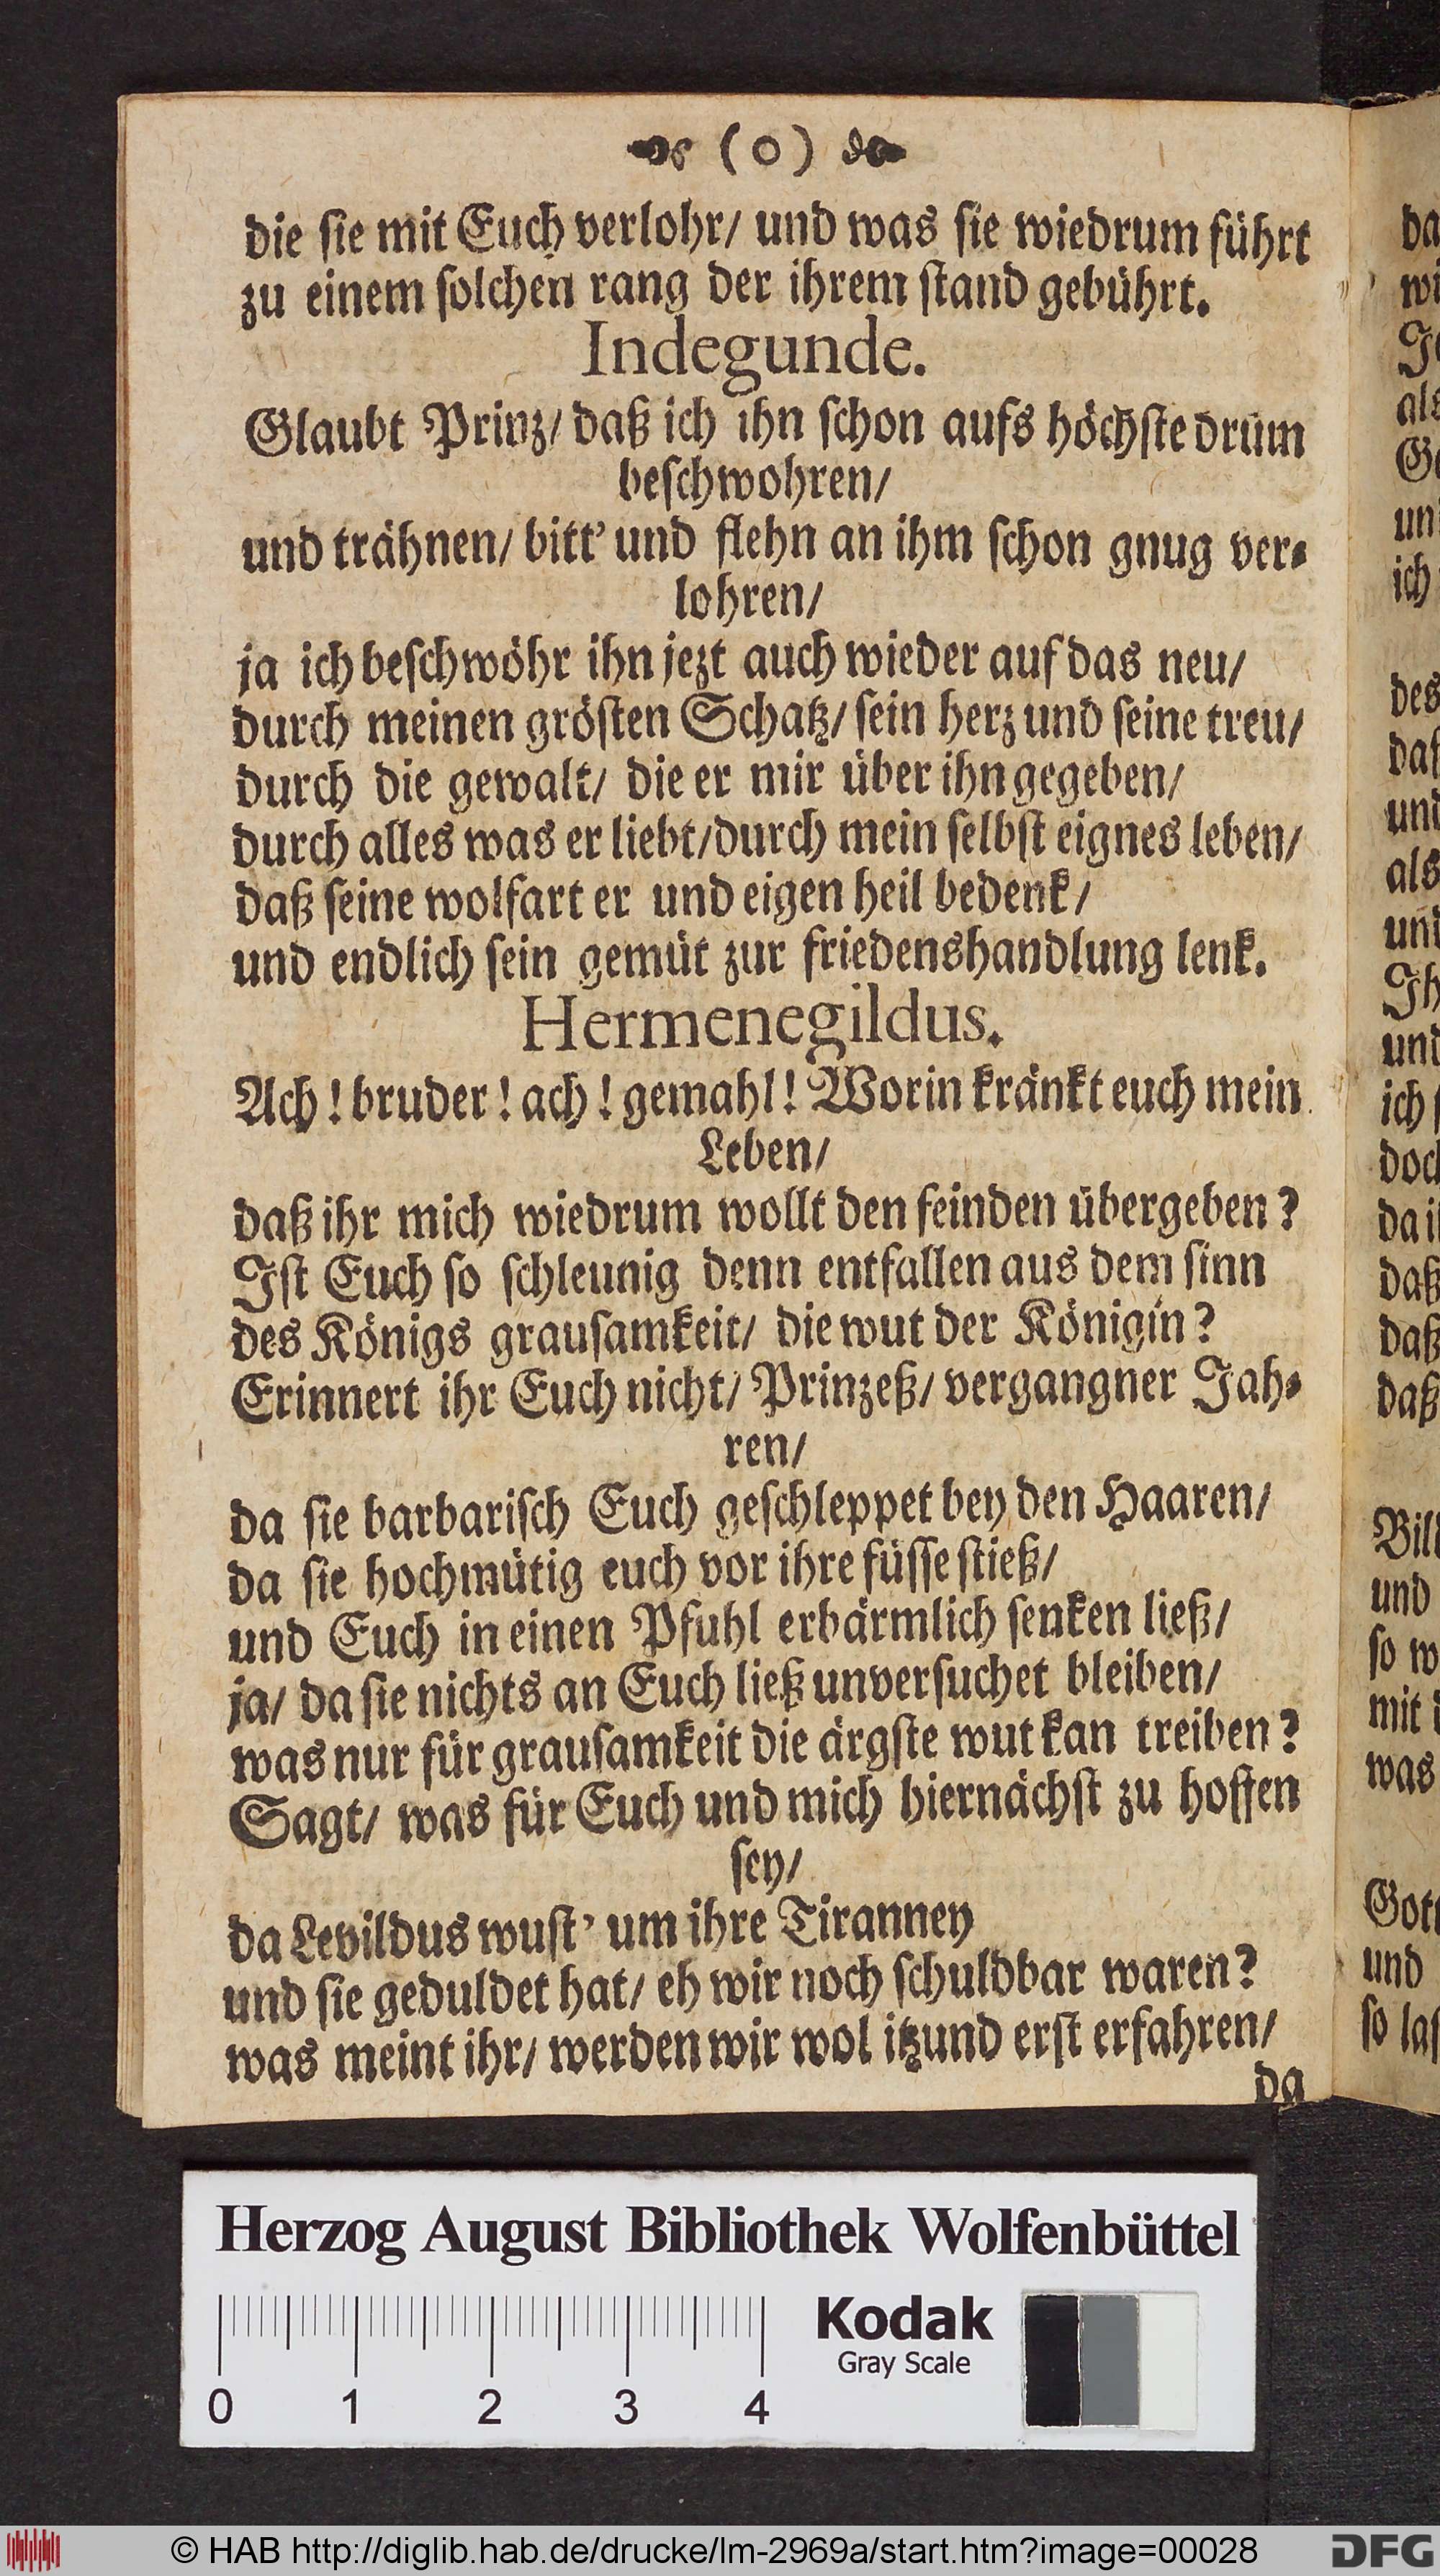 (o)
die ſie mit Euch verlohr/ und was ſie wiedrum führt
zu einem ſolchen rang der ihrem ſtand gebührt.
Indegunde.
Glaubt Prinz/ daß ich ihn ſchon aufs höchſte drüm
beſchwohren/
und trähnen/ bitt' und flehn an ihm ſchon gnug ver-
lohren/
ja ich beſchwöhr ihn jezt auch wieder auf das neu/
durch meinen gröſten Schatz/ ſein herz und ſeine treu/
durch die gewalt/ die er mir über ihn gegeben/
durch alles was er liebt/ durch mein ſelbſt eignes leben/
daß ſeine wolfart er und eigen heil bedenk/
und endlich ſein gemüt zur friedenshandlung lenk.
Hermenegildus.
Ach! bruder! ach! gemahl! Worin kränkt euch mein
Leben/
daß ihr mich wiedrum wollt den feinden übergeben?
Iſt Euch ſo ſchleunig denn entfallen aus dem ſinn
des Königs grauſamkeit/ die wut der Königin?
Erinnert ihr Euch nicht/ Prinzeß/ vergangner Jah-
ren/
da ſie barbariſch Euch geſchleppet bey den Haaren/
da ſie hochmütig euch vor ihre füſſe ſtieß/
und Euch in einen Pfuhl erbärmlich ſenken ließ/
ja/ da ſie nichts an Euch ließ unverſuchet bleiben/
was nur für grauſamkeit die ärgſte wut kan treiben?
Sagt/ was für Euch und mich hiernächſt zu hoffen
ſey/
da Levildus wuſt' um ihre Tiranney
und ſie geduldet hat/ eh wir noch ſchuldbar waren?
was meint ihr/ werden wir wol itzund erſt erfahren/
da
da
wi
als
un
ich
des
daſ
und
als
und
Ih
und
ich
doch
da i
daß
daß
daß
Bill
und
ſo w
mit d
was
Gott
und
ſo laſ
Herzog August Bibliothek Wolfenbüttel
Kodak
Gray Scale
0 1 2 3 4
© HAB http://diglib.hab.de/drucke/lm-2969a/start.htm?image=00028
DFG